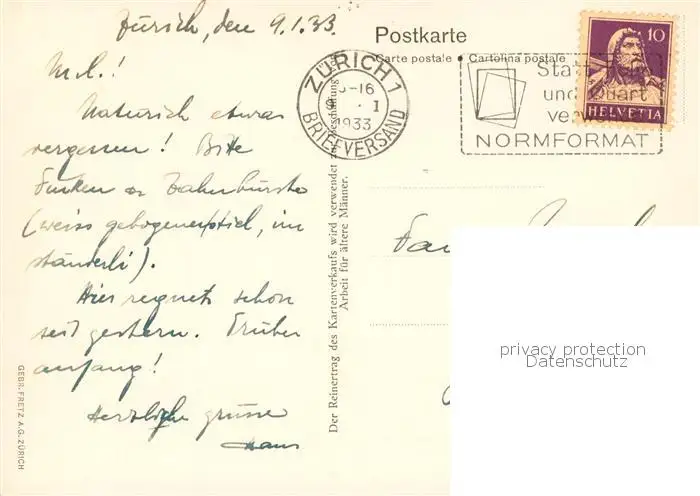 Zürich, den 9.1.33.
M.L.!
Natürlich etwas
vergessen! Bitte
senken Zahnbürste
(weiss gebogener Stiel, im
ständerli).
Hier regnets schon
seit gestern. Trüber
anfang!
Herzliche grüsse
Hans
Postkarte
Carte postale • Cartolina postale
ZÜRICH 1
-16
9. I
1933
BRIEFVERSAND
Statt
und Quart
NORMFORMAT
10
HELVETIA
Der Reinertrag des Kartenverkaufs wird verwendet zur Beschaffung von
Arbeit für ältere Männer.
GEBR. FRETZ A.G. ZÜRICH
privacy protection
Datenschutz